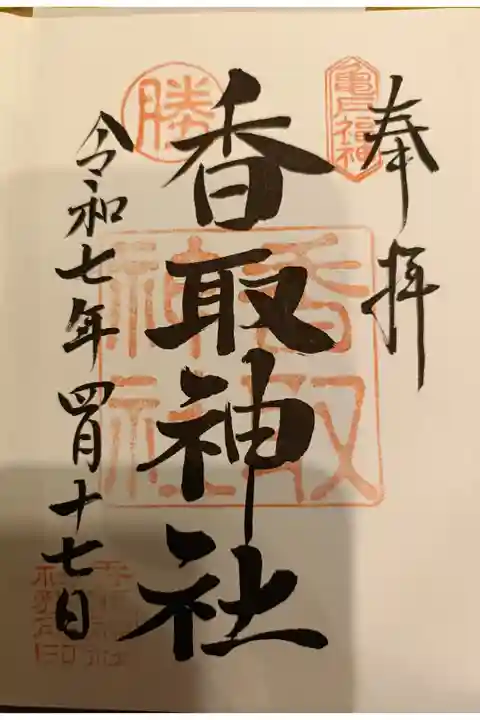 奉拝
亀戸福神
香取神社
香取神社
勝
令和七年四月十七日